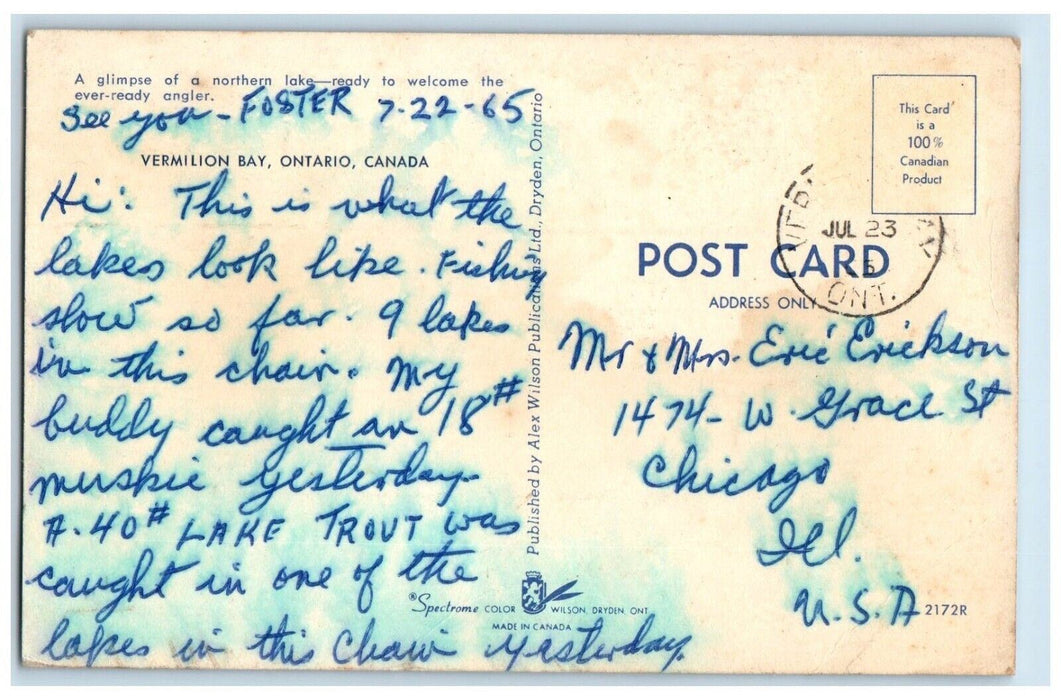 A glimpse of a northern lake—ready to welcome the
ever-ready angler.
See you - FOSTER 7-22-65
VERMILION BAY, ONTARIO, CANADA
Hi! This is what the
lakes look like. Fishing
slow so far. 9 lakes
in this chain. My
buddy caught an 18#
muskie yesterday.
A. 40# LAKE TROUT was
caught in one of the
lakes in this chain yesterday.
Published by Alex Wilson Publications Ltd., Dryden, Ontario
®Spectrome COLOR WILSON, DRYDEN, ONT
MADE IN CANADA
This Card
is a
100%
Canadian
Product
JUL 23
ONT.
POST CARD
ADDRESS ONLY
Mr & Mrs. Eric Erickson
1474- W. Grace St
Chicago
Ill.
U.S.A
2172R